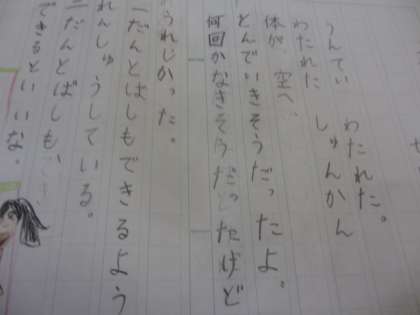 うんてい　わたれた。
わたれた　しゅんかん
体が、空へ、
とんでいきそうだったよ。
何回かなきそうだったけど
うれしかった。
一だんとばしもできるよう
れんしゅうしている。
二だんとばしも
できるといいな。